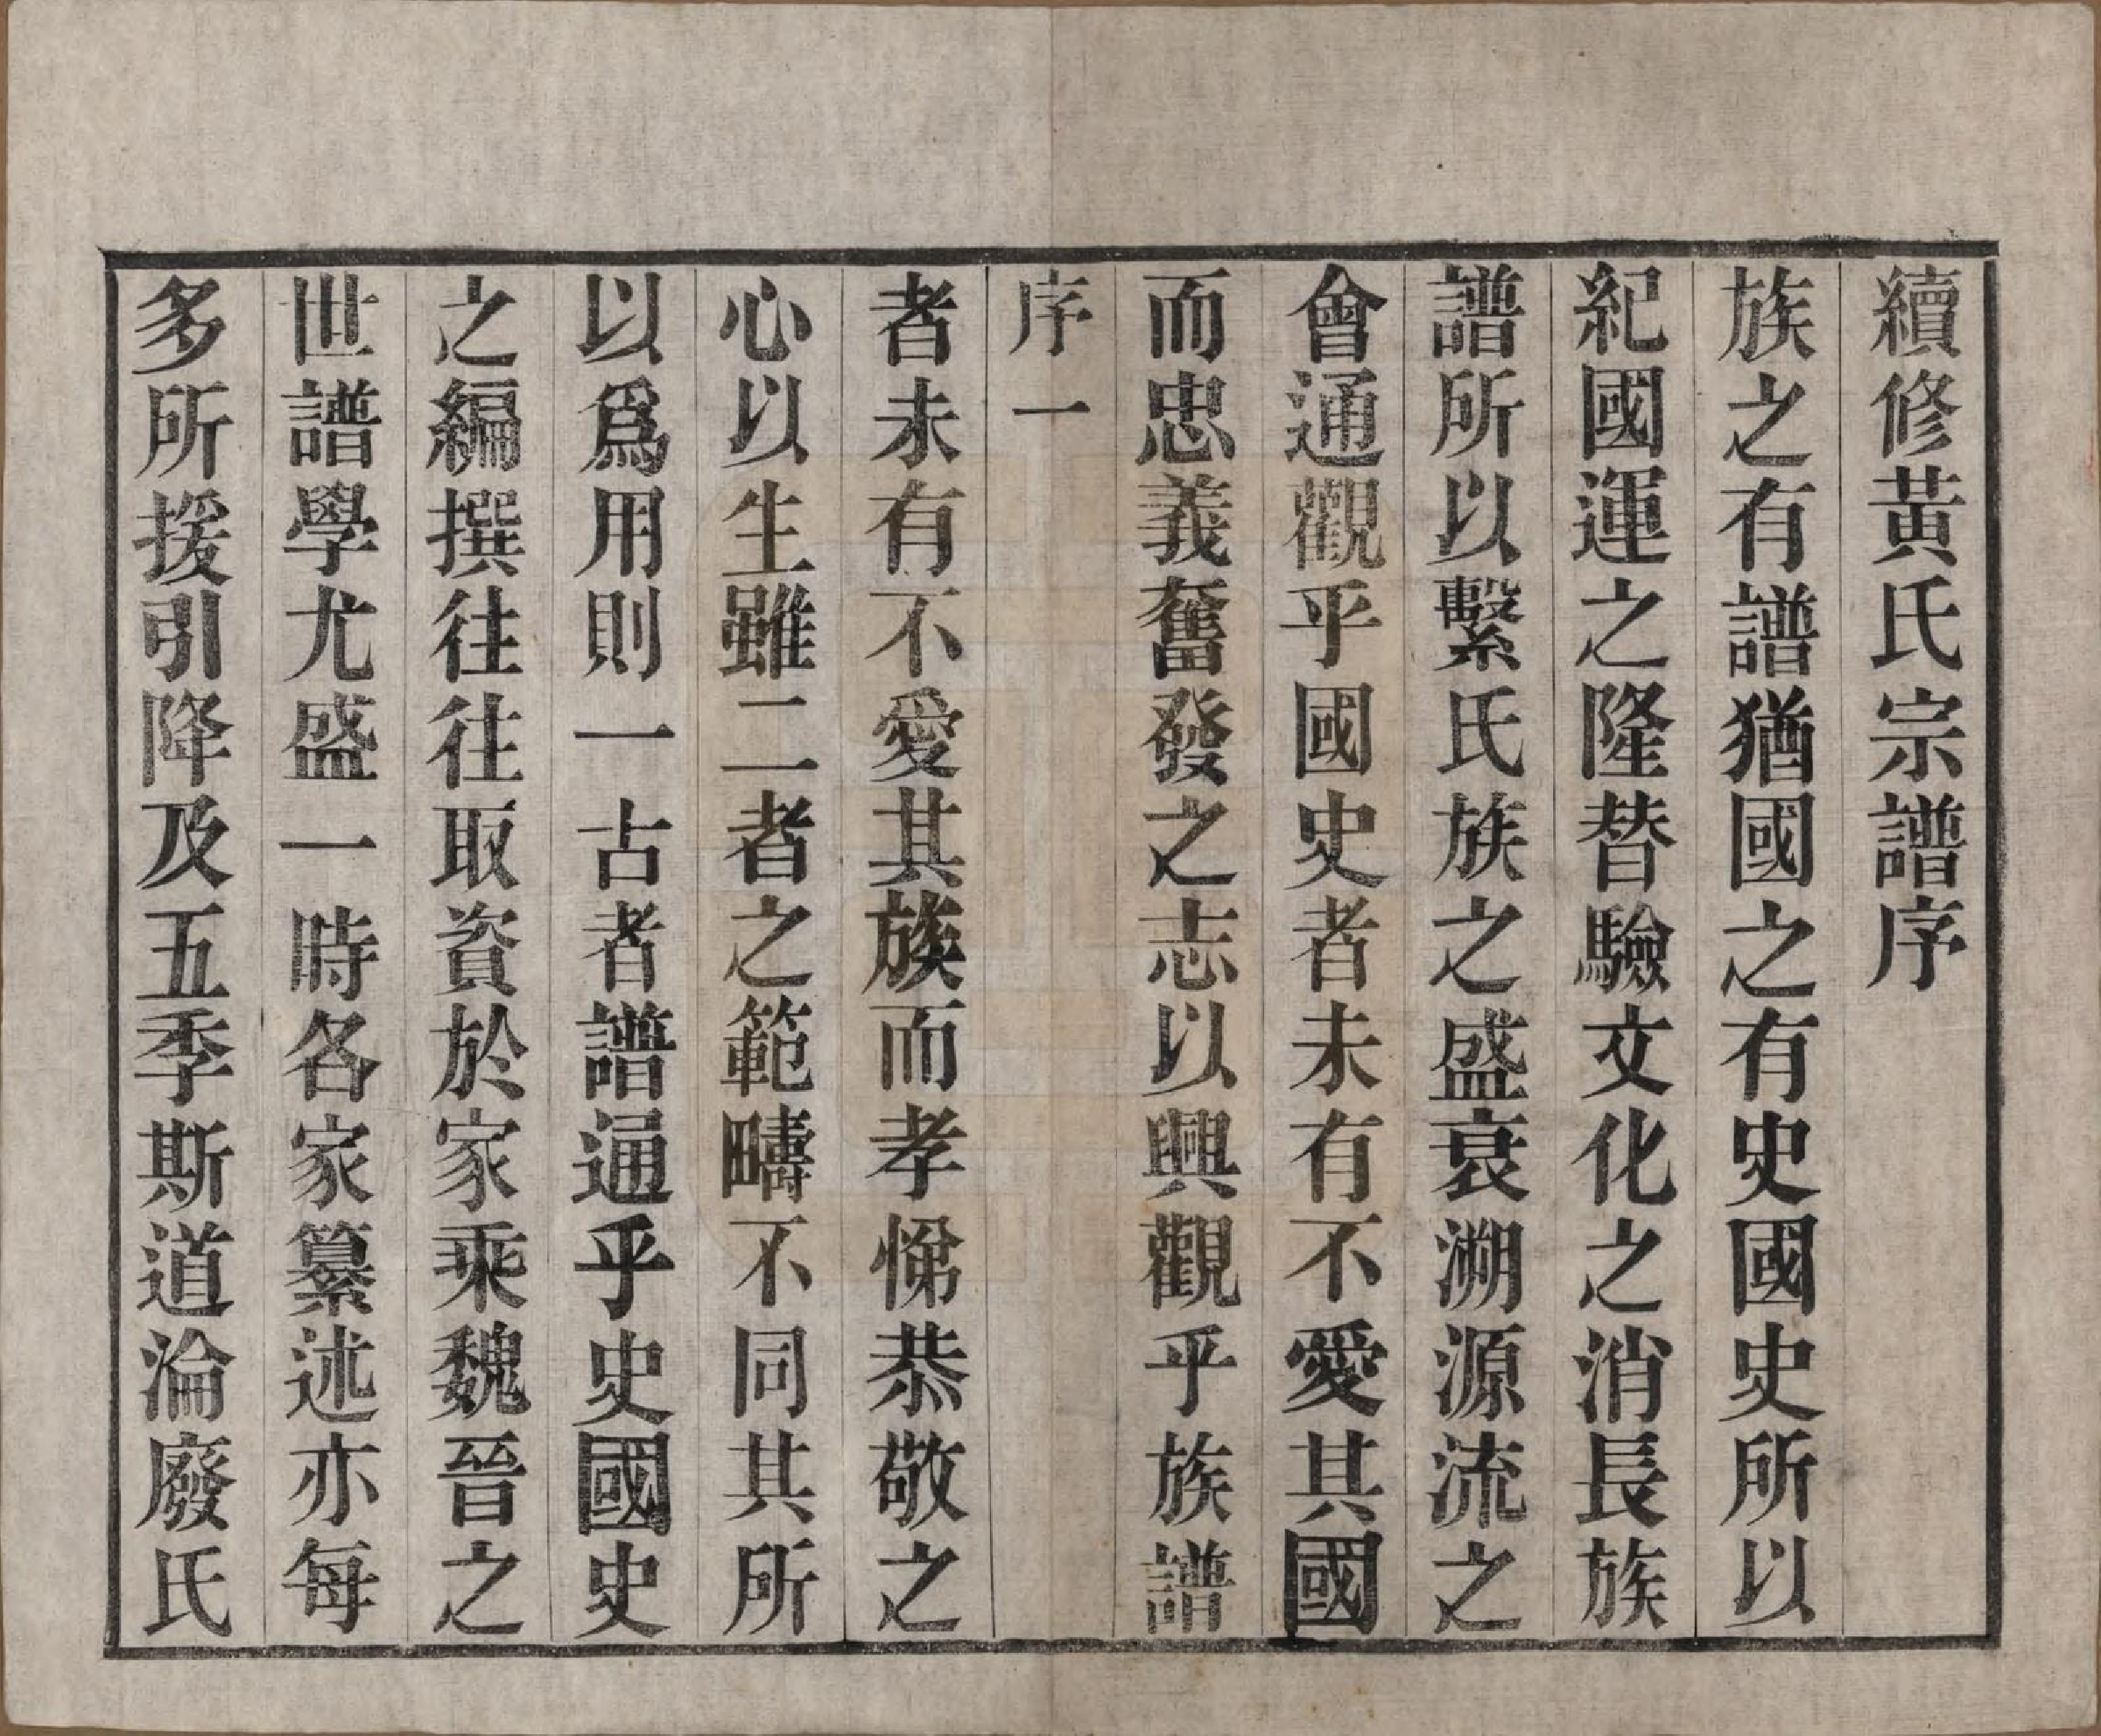 續修黃氏宗譜序
族之有譜猶國之有史國史所以
紀國運之隆替驗文化之消長族
譜所以繫氏族之盛衰溯源流之
會通觀乎國史者未有不愛其國
而忠義奮發之志以興觀乎族譜
序一
者未有不愛其族而孝悌恭敬之
心以生雖二者之範疇不同其所
以爲用則一古者譜通乎史國史
之編撰往往取資於家乘魏晉之
世譜學尤盛一時各家纂述亦每
多所援引降及五季斯道淪廢氏